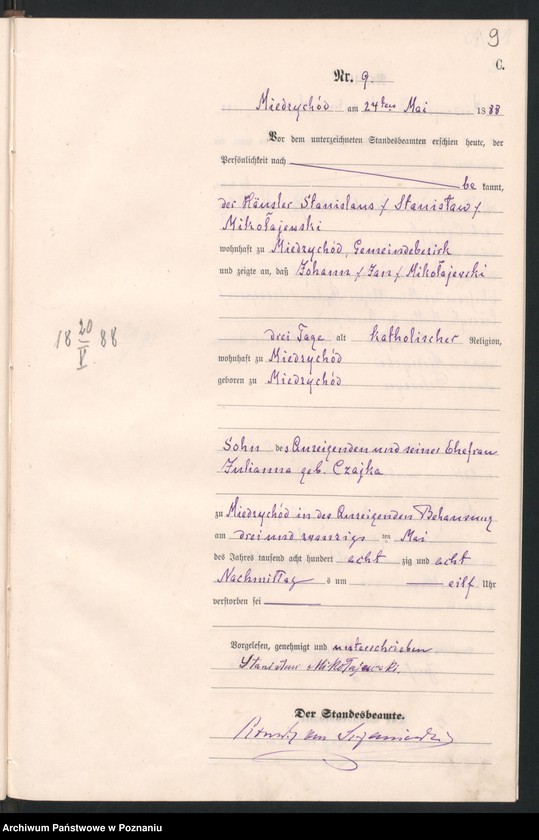 9
C.
Nr. 9.
Miedzychód am 24ten Mai 1888
Vor dem unterzeichneten Standesbeamten erschien heute, der
Persönlichkeit nach
be kannt,
der Häusler Stanislaus / Stanisław /
Mikołajewski
wohnhaft zu Miedzychód, Gemeindebezirk
und zeigte an, daß Johann / Jan / Mikołajewski
drei Tage alt katholischer Religion,
18 20/V 88
wohnhaft zu Miedzychód
geboren zu Miedzychód
Sohn des Anzeigenden und seiner Ehefrau
Julianna geb. Czajka
zu Miedzychód in des Anzeigenden Behausung
am drei und zwanzigsten Mai
des Jahres tausend acht hundert acht zig und acht
Nachmittags um eilf Uhr
verstorben sei
Vorgelesen, genehmigt und unterschrieben
Stanislaw Mikołajewski.
Der Standesbeamte.
Archiwum Państwowe w Poznaniu